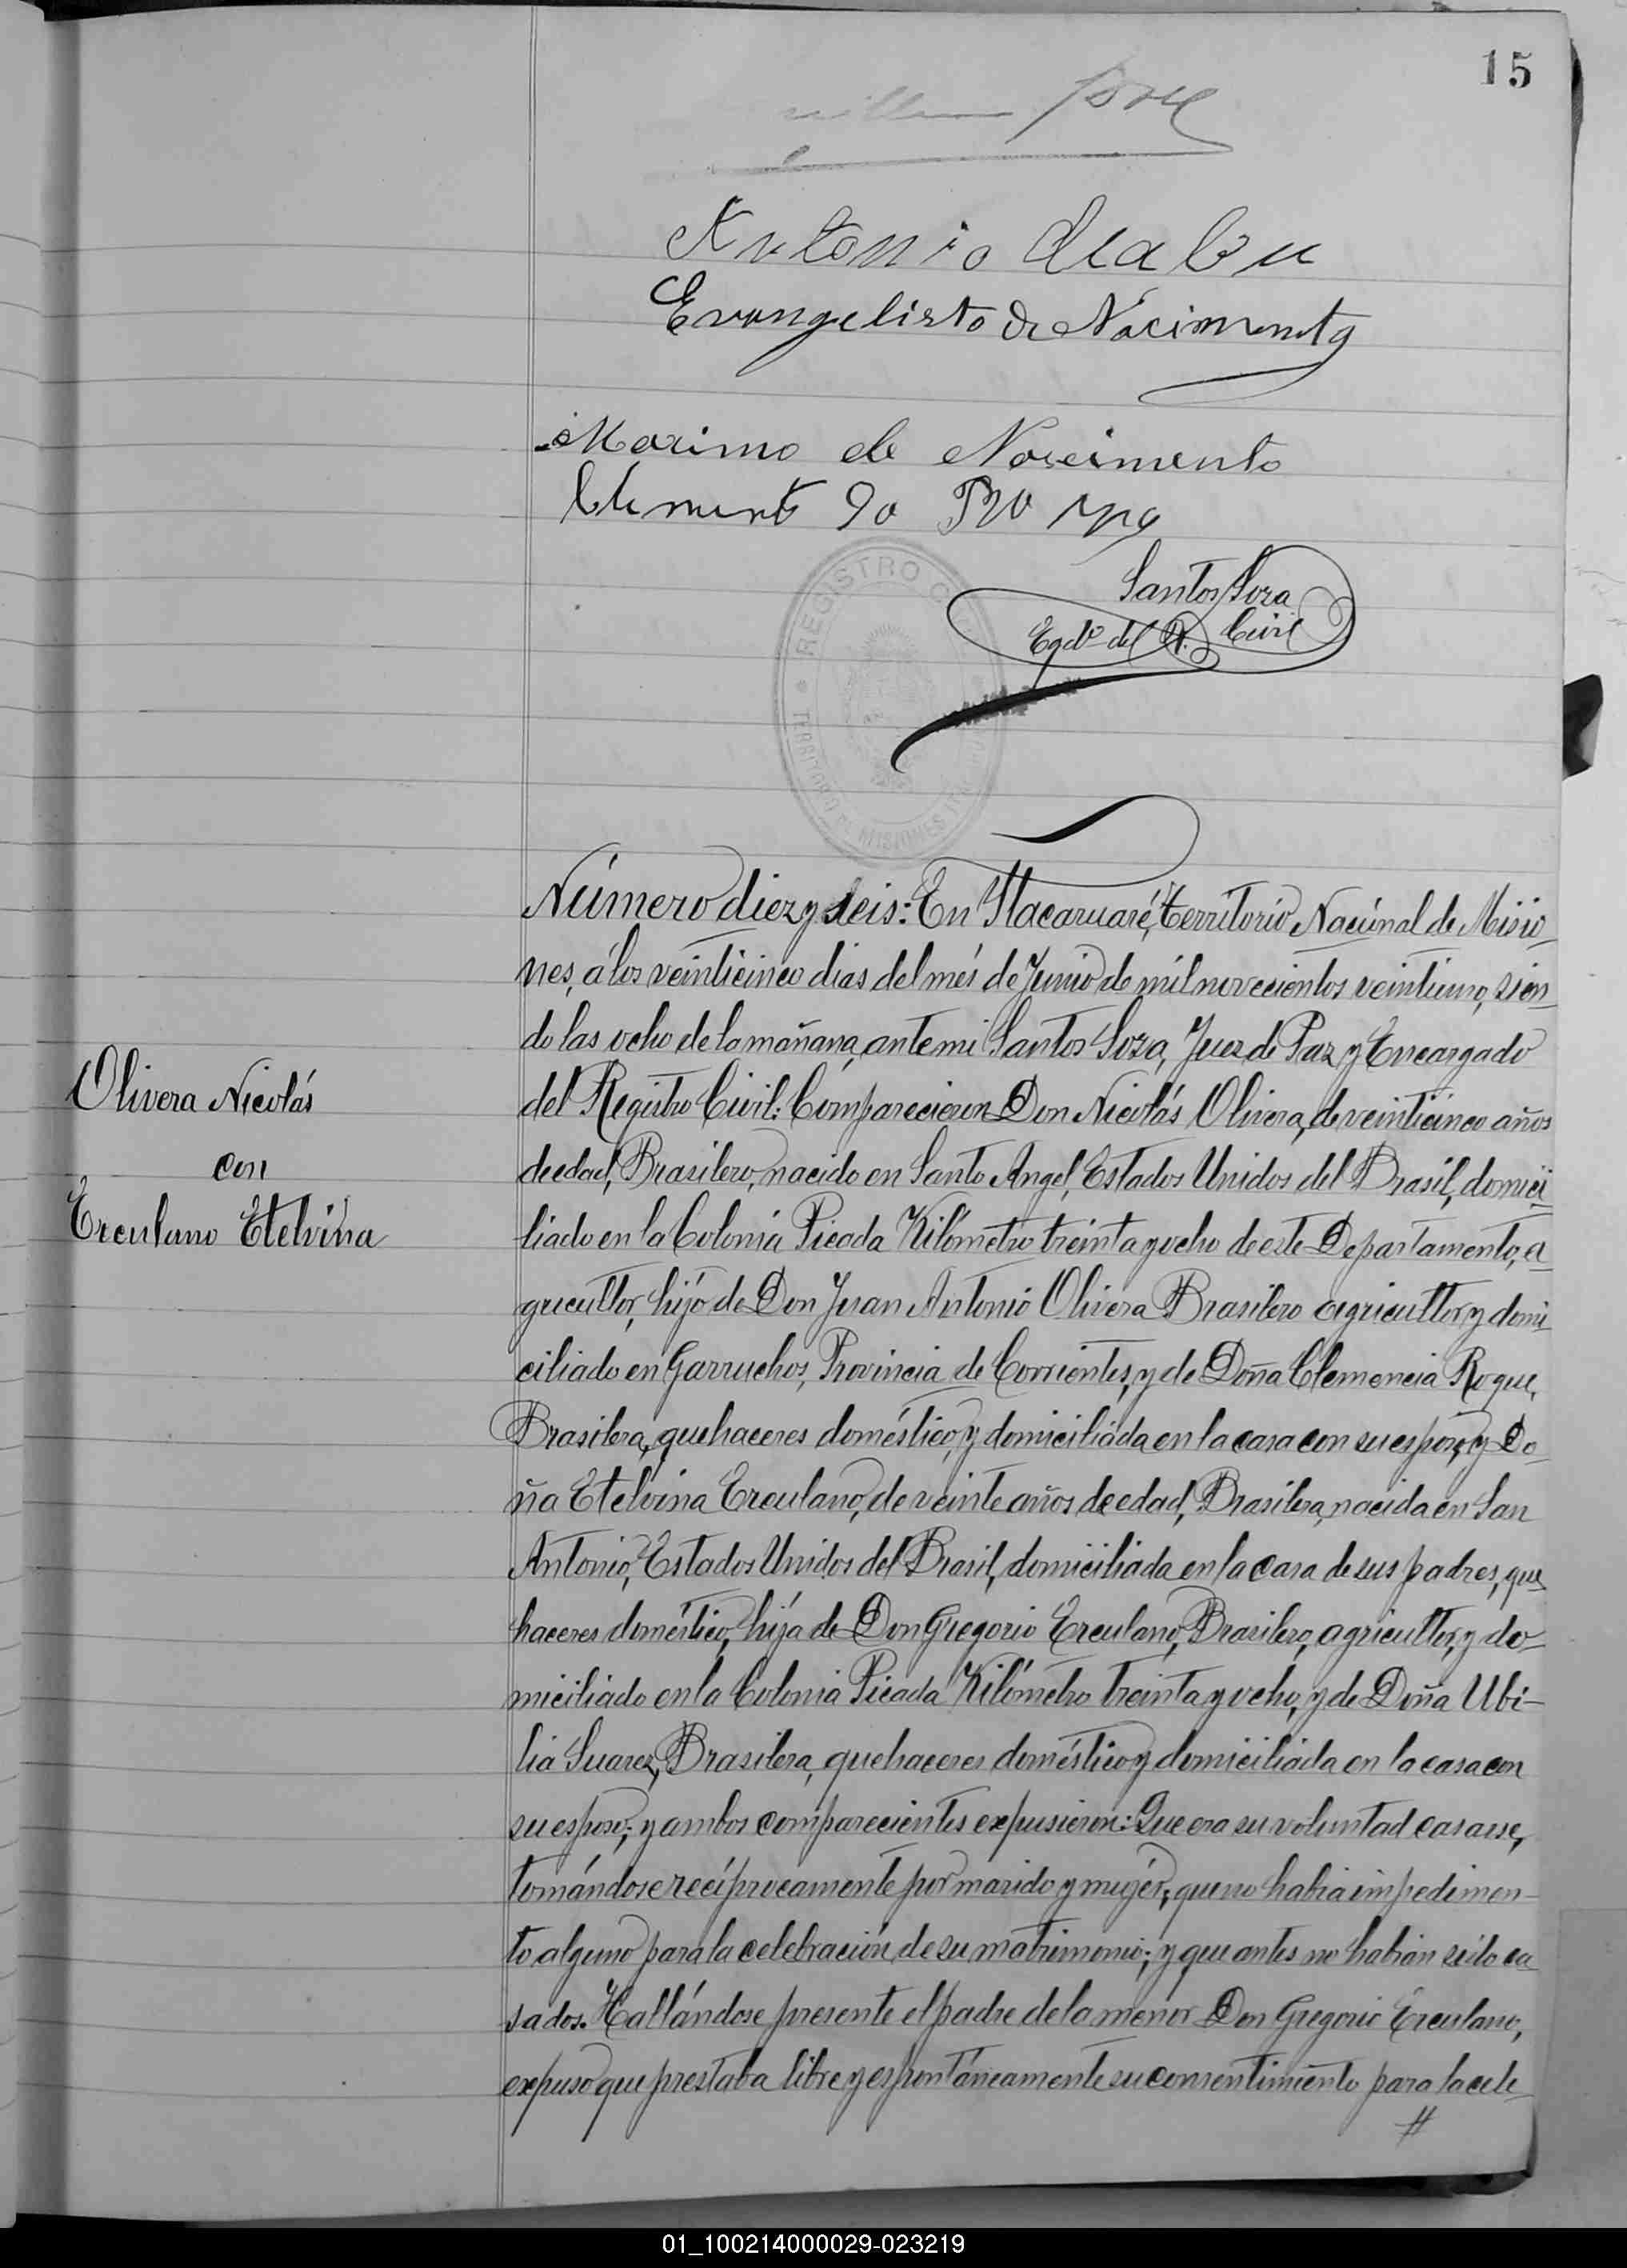 15
Antonio
Evangelisto de Nacimento
Maximo de Nascimento
Santos Soza
Egdo. del R. Civil
REGISTRO
TERRITORIO DE MISIONES
Número diez y seis: En Itacaruaré, Territorio Nacional de Misio-
nes, á los veinticinco dias del més de Junio de mil novecientos veintiuno, sien-
do las ocho de la mañana, ante mi Santos Soza, Juez de Paz y Encargado
del Registro Civil: Comparecieron Don Nicolás Olivera, de veinticinco años
de edad, Brasilero, nacido en Santo Angel, Estados Unidos del Brasil, domici-
Olivera Nicolás
con
Erculano Etelvina
liado en la Colonia Picada Kilómetro treinta y ocho de este Departamento, a-
gricultor, hijo de Don Juan Antonio Olivera Brasilero agricultor y domi-
ciliado en Garruchos, Provincia de Corrientes, y de Doña Clemencia Roque,
Brasilera, quehaceres doméstico, y domiciliada en la casa con su esposo, y Do-
ña Etelvina Erculano, de veinte años de edad, Brasilera, nacida en San
Antonio, Estados Unidos del Brasil, domiciliada en la casa de sus padres, que-
haceres doméstico, hija de Don Gregorio Erculano, Brasilero, agricultor, y do-
miciliado en la Colonia Picada Kilómetro treinta y ocho, y de Doña Ubi-
lia Suarez, Brasilera, quehaceres doméstico y domiciliada en la casa con
su esposo; y ambos comparecientes expusieron: Que era su voluntad casarse,
tomándose recíprocamente por marido y mujér; que no habia impedimen-
to alguno para la celebración de su matrimonio; y que antes no habian sido ca-
sados. Hallándose presente el padre de la menor Don Gregorio Erculano,
expuso que prestaba libre y espontáneamente su consentimiento para la cele-
#
01_100214000029-023219